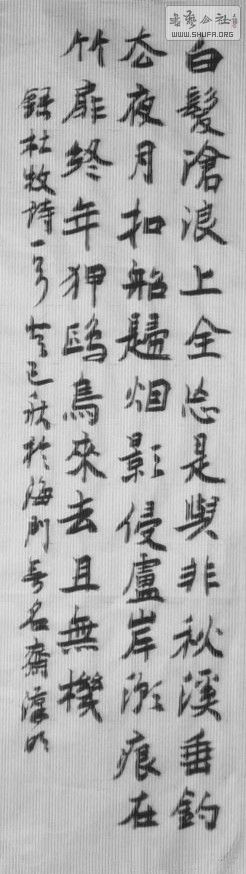 白髮滄浪上全忘是與非秋溪垂釣
去夜月扣船歸烟影侵盧岸潮痕在
竹扉終年狎鷗鳥來去且無機
錄杜牧詩一首 癸巳秋於海門無名齋
WWW.SHUFA.ORG